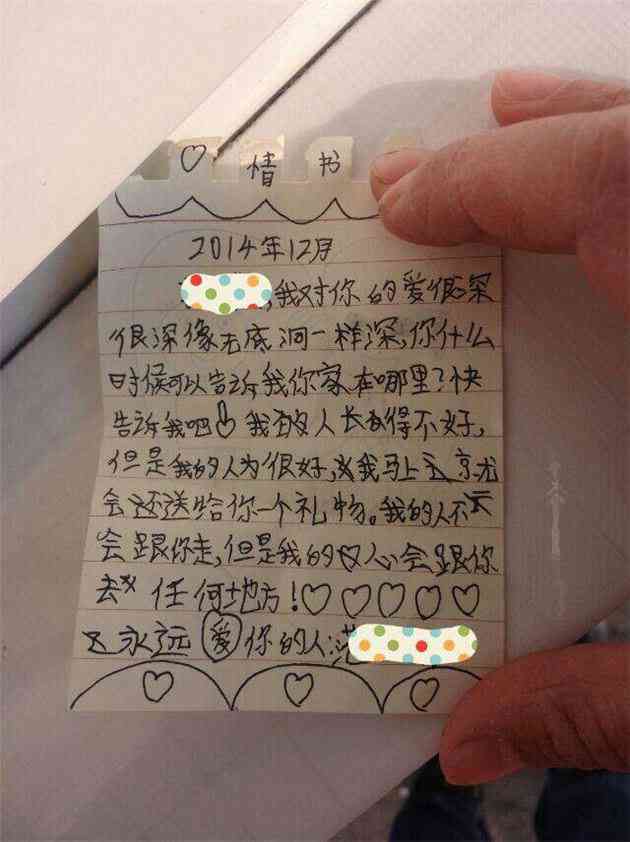 ♡ 情书
2014年12月
,我对你的爱很深
很深像无底洞一样深,你什么
时候可以告诉我你家在哪里?快
告诉我吧 我的人长的得不好,
但是我的人为很好,我马上
会还送给你一个礼物。我的人不
会跟你走,但是我的心会跟你
去 任何地方!♡♡♡♡♡
永远爱你的人:范
♡ ♡ ♡